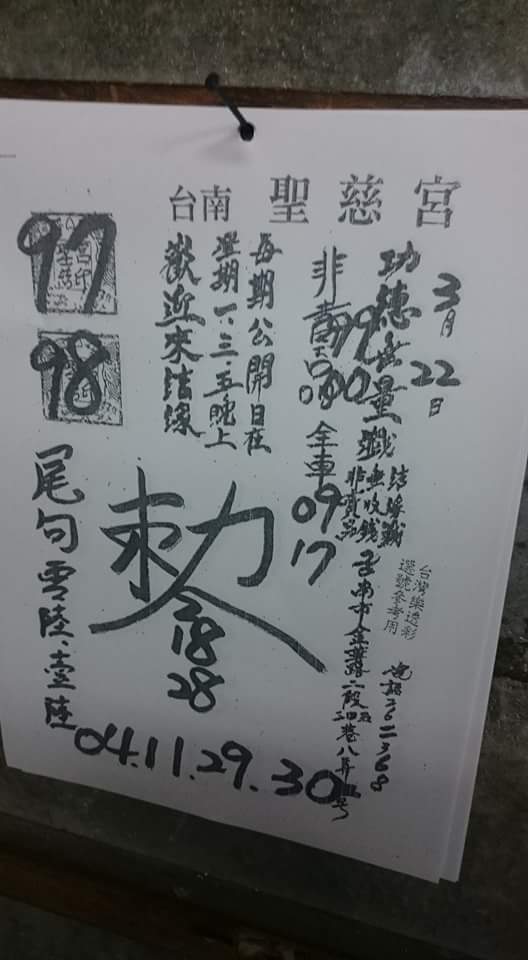 台南 聖慈宮
3月22日
功德無量
99
00
全車
09
17
每期公開日在
星期一.三.五晚上
歡迎來結緣
97
98
結緣
無收錢
非賣品
台灣樂透彩
選號參考用
台南市金華路二段
尾句零陸.壹陸
18
28
04.11.29.30